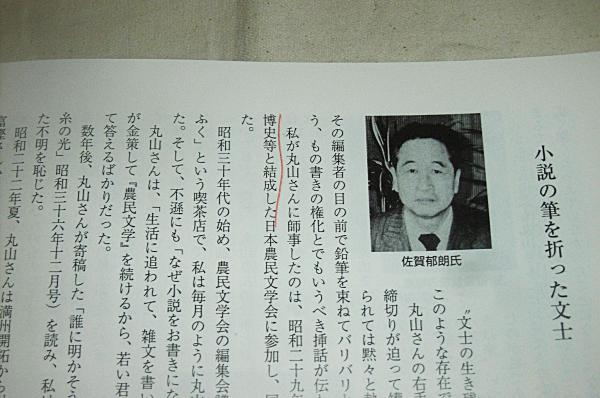 小説の筆を折った文士
佐賀郁朗氏
〝文士の生き残
このような存在で
丸山さんの右手
締切りが迫って
られては黙々と
その編集者の目の前で鉛筆を束ねてバリバリ
う、もの書きの権化とでもいうべき挿話が伝
私が丸山さんに師事したのは、昭和二十九年
博史等と結成した日本農民文学会に参加し、
た。
昭和三十年代の始め、農民文学会の編集会議
ふく」という喫茶店で、私は毎月のように丸山
た。そして、不遜にも「なぜ小説をお書きにな
丸山さんは、「生活に追われて、雑文を書い
が金策して『農民文学』を続けるから、若い君
て答えるばかりだった。
数年後、丸山さんが寄稿した「誰に明かそう
糸の光」昭和三十六年十二月号)を読み、私は
た不明を恥じた。
昭和二十二年夏、丸山さんは満州開拓から